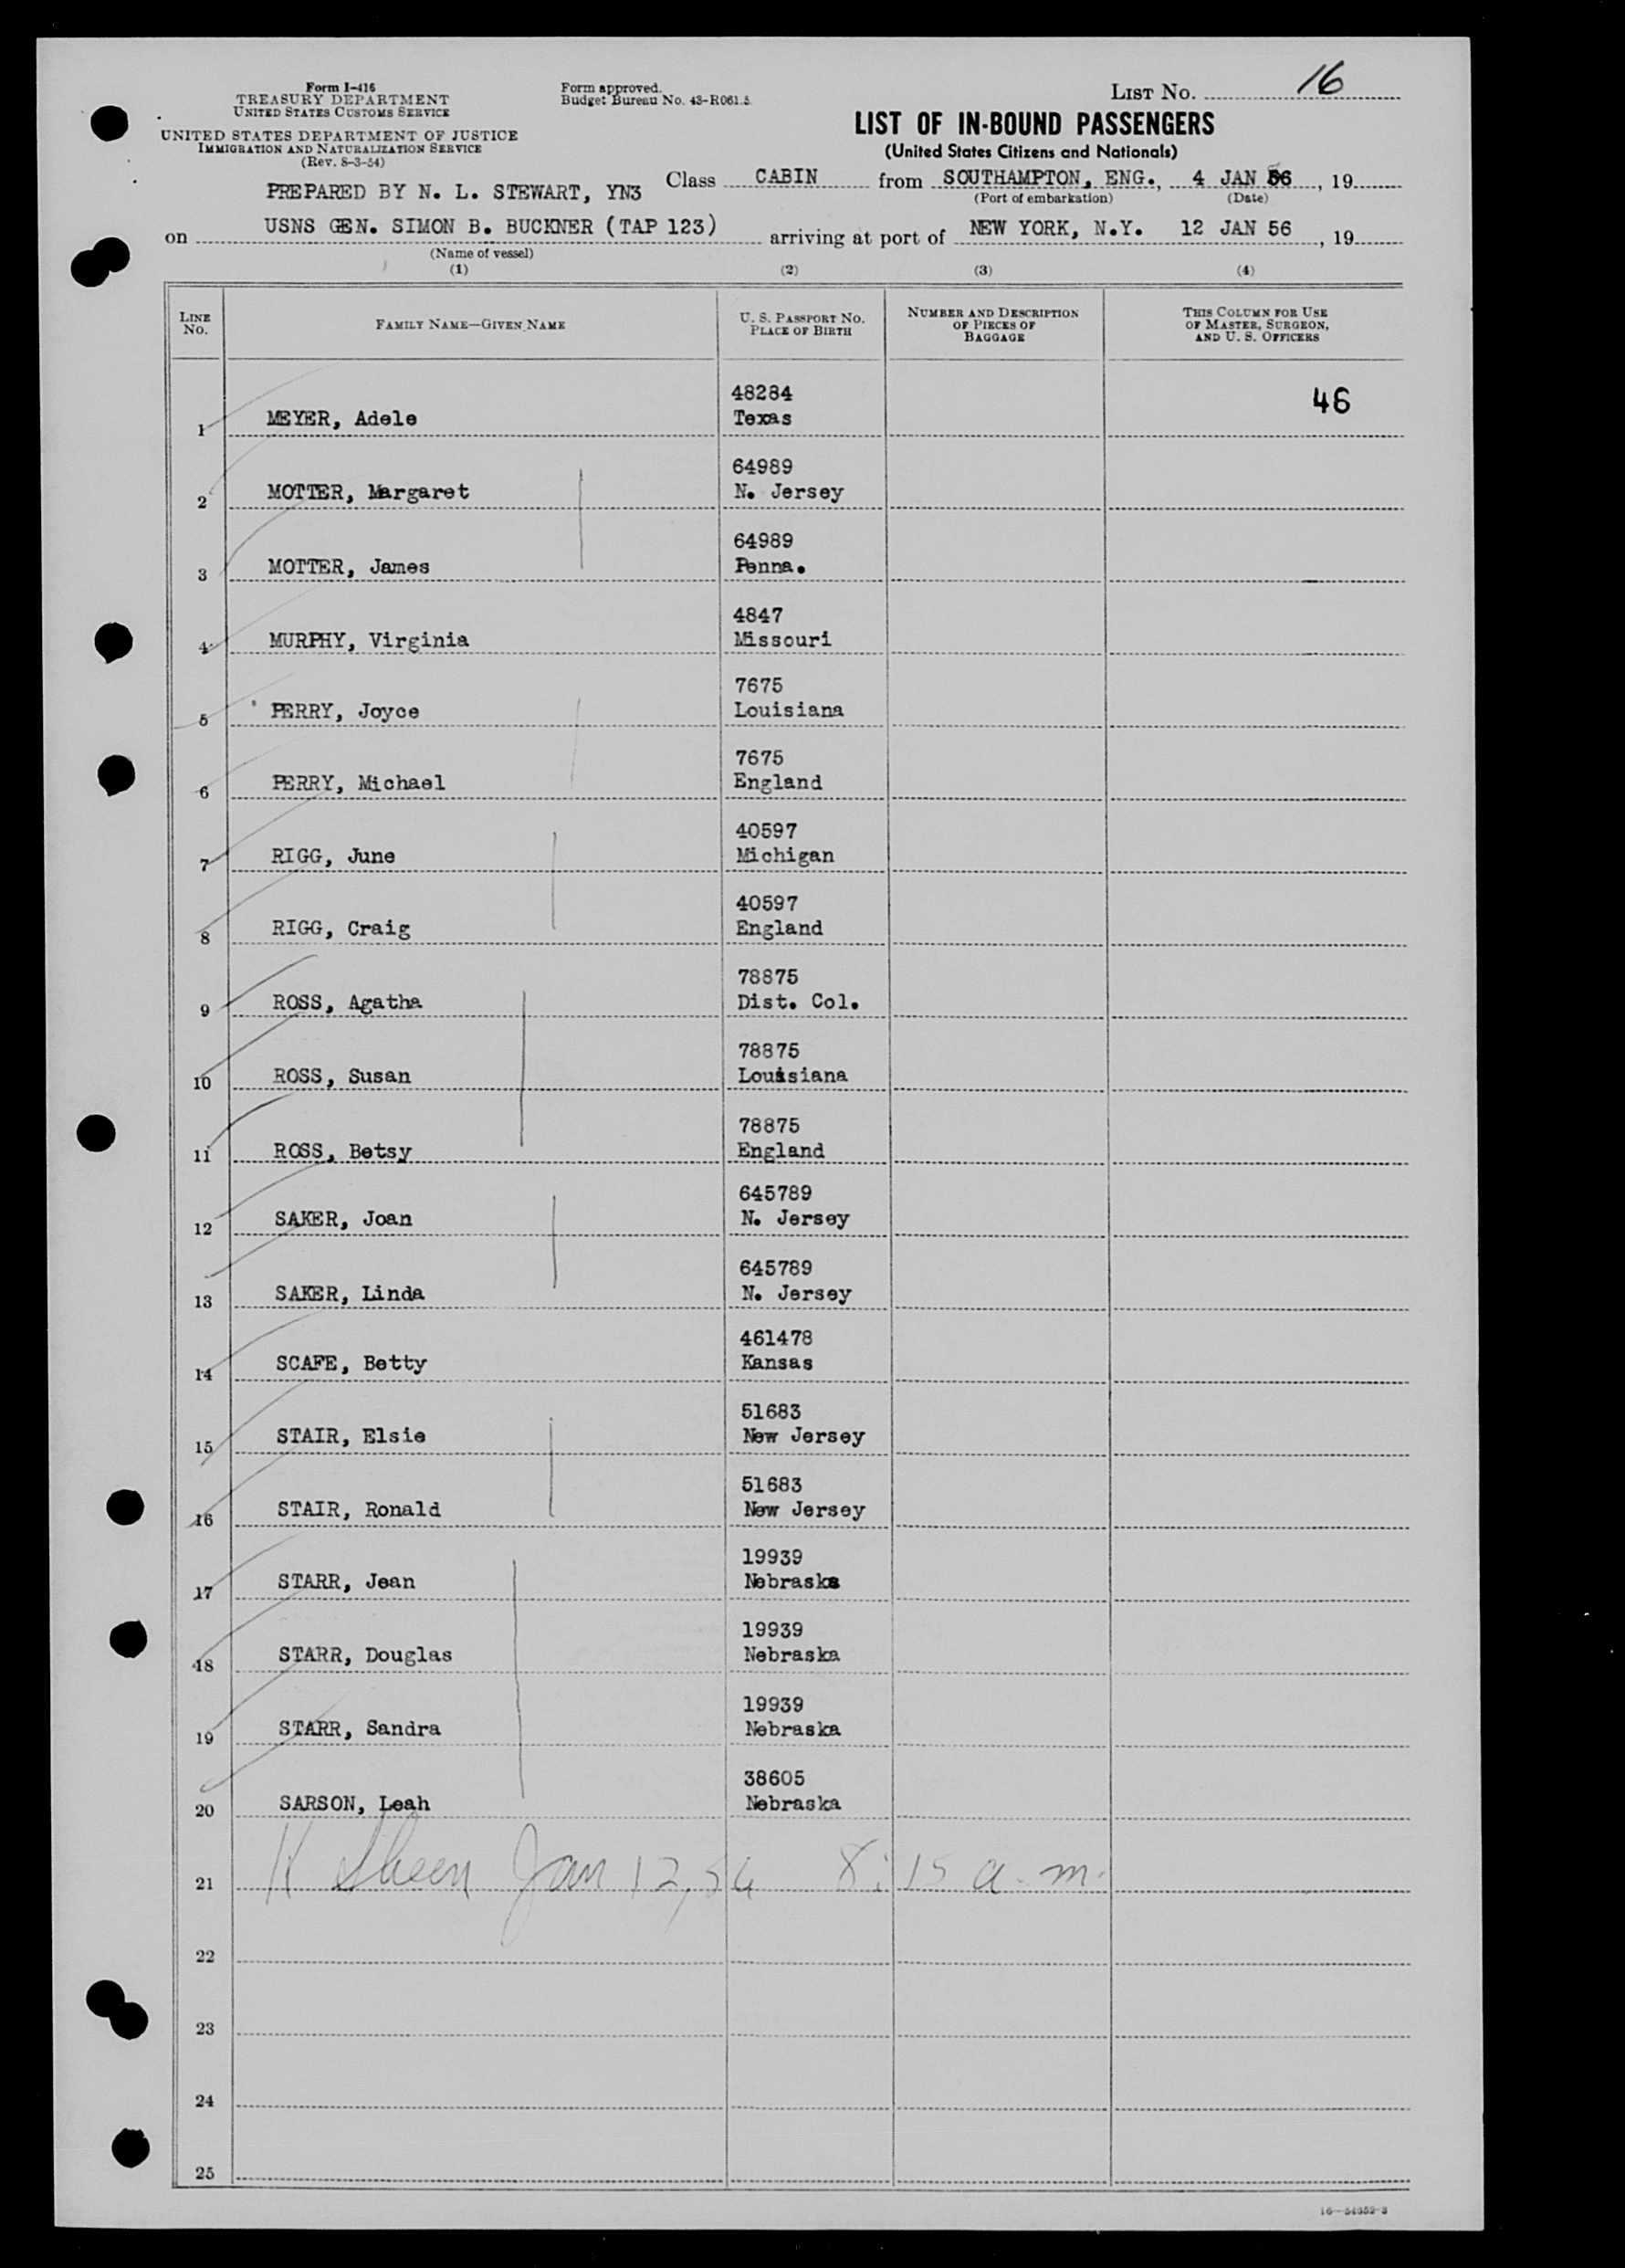 Form I-416
TREASURY DEPARTMENT
UNITED STATES CUSTOMS SERVICE
UNITED STATES DEPARTMENT OF JUSTICE
IMMIGRATION AND NATURALIZATION SERVICE
(Rev. 8-3-54)
Form approved.
Budget Bureau No. 43-R061.5
LIST NO. 16
LIST OF IN-BOUND PASSENGERS
(United States Citizens and Nationals)
PREPARED BY N. L. STEWART, YN3 Class CABIN from SOUTHAMPTON, ENG., 4 JAN 56, 19
(Port of embarkation) (Date)
on USNS GEN. SIMON B. BUCKNER (TAP 123) arriving at port of NEW YORK, N.Y. 12 JAN 56, 19
(Name of vessel)
(1) (2) (3) (4)
LINE NO. FAMILY NAME—GIVEN NAME U. S. PASSPORT NO. PLACE OF BIRTH NUMBER AND DESCRIPTION OF PIECES OF BAGGAGE THIS COLUMN FOR USE OF MASTER, SURGEON, AND U. S. OFFICERS
48284 46
1 MEYER, Adele Texas
64989
2 MOTTER, Margaret N. Jersey
64989
3 MOTTER, James Penna.
4847
4 MURPHY, Virginia Missouri
7675
5 PERRY, Joyce Louisiana
7675
6 PERRY, Michael England
40597
7 RIGG, June Michigan
40597
8 RIGG, Craig England
78875
9 ROSS, Agatha Dist. Col.
78875
10 ROSS, Susan Louisiana
78875
11 ROSS, Betsy England
645789
12 SAKER, Joan N. Jersey
645789
13 SAKER, Linda N. Jersey
461478
14 SCAFE, Betty Kansas
51683
15 STAIR, Elsie New Jersey
51683
16 STAIR, Ronald New Jersey
19939
17 STARR, Jean Nebraska
19939
18 STARR, Douglas Nebraska
19939
19 STARR, Sandra Nebraska
38605
20 SARSON, Leah Nebraska
21 Sheen Jan 12, 56 8:15 a.m.
22
23
24
25